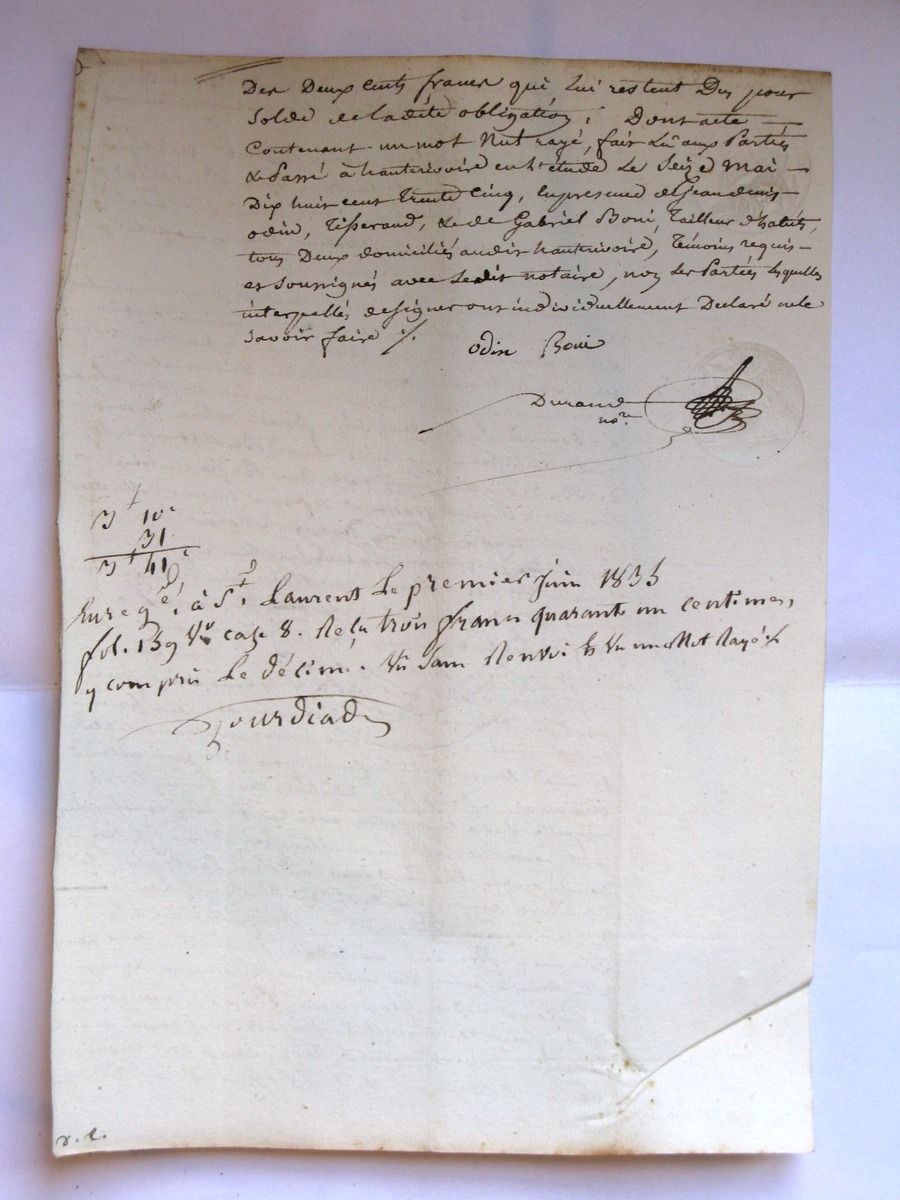 Des Deux cents francs qui lui restent Dus pour
Solde de ladite obligation ; Dont acte —
Contenant un mot Nul rayé, fait Lû aux Parties
& Passé à hauterivoire en l'étude Le Seize Mai —
Dix huit cent trente Cinq, En presence de Jean denis
odin, Tisserand, & de Gabriel Boni, Tailleur d'habits,
tous Deux domiciliés audit hauterivoire, Témoins requis —
et soussignés avec Ledit notaire, non les Parties lesquelles
interpellés de signer ont individuellement Declaré ne le
Savoir faire ./.
odin Boni
Durand
nore.
3f 10c
31
3f 41c
Enregé. à St. Laurent Le premier juin 1835
fol. 139 Vo case 8. Reçu trois francs quarante un centimes,
y compris Le décime. Vû Sans Renvoi & Vu un Mot Rayé
Jourdiad